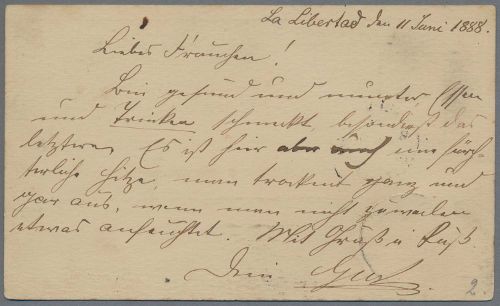 La Libertad den 11 Juni 1888.
Liebes Frauchen!
Bin gesund und munter Essen
und Trinken schmeckt, besonders das
letztere. Es ist hier aber auch eine fürch-
terliche Hitze, man trocknet ganz und
gar aus, wenn man nicht zuweilen
etwas anfeuchtet. Mit Gruß u Kuß
Dein
2.